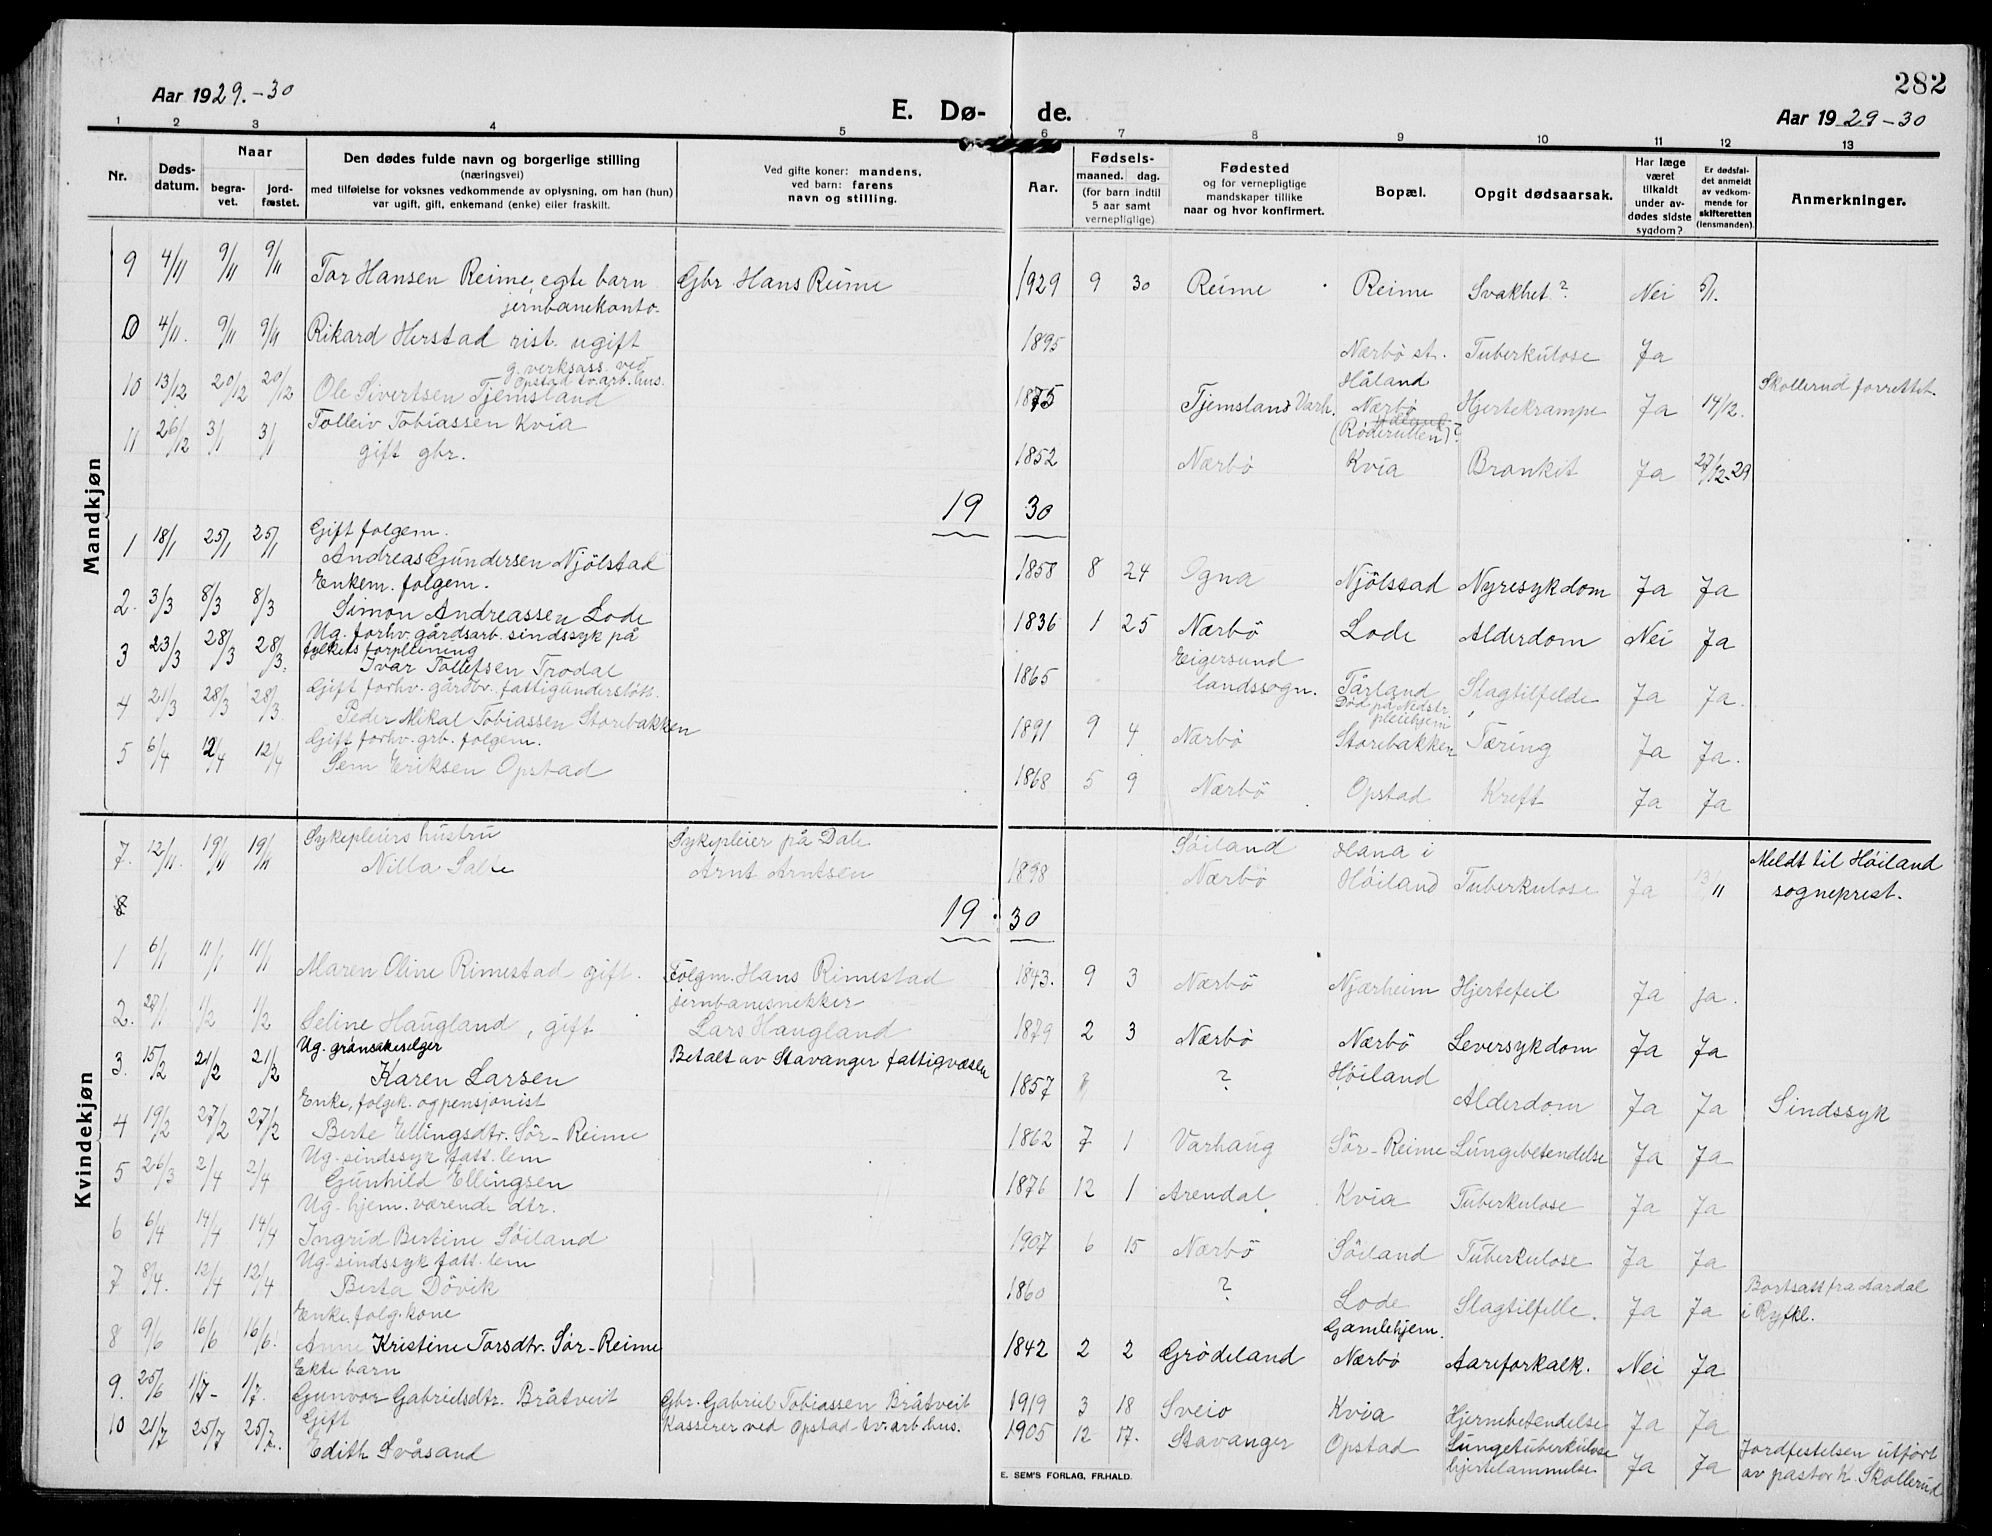 282
Aar 1929.-30
E. Dø- de.
Aar 1929-30
1 2 3 4 5 6 7 8 9 10 11 12 13
Nr.
Døds-datum.
Naar
begra-vet.
jord-fæstet.
Den dødes fulde navn og borgerlige stilling
(næringsvei)
med tilføielse for voksnes vedkommende av oplysning, om han (hun)
var ugift, gift, enkemand (enke) eller fraskilt.
Ved gifte koner: mandens,
ved barn: farens
navn og stilling.
Aar.
Fødsels-
maaned. dag.
(for barn indtil
5 aar samt
vernepligtige)
Fødested
og for vernepligtige
mandskaper tillike
naar og hvor konfirmert.
Bopæl.
Opgit dødsaarsak.
Har læge
været
tilkaldt
under av-
dødes sidste
sygdom?
Er dødsfal-
det anmeldt
av vedkom-
mende for
skifteretten
(lensmanden).
Anmerkninger.
Mandkjøn
9 4/11 9/11 9/11 Tor Hansen Reime, egte barn Gbr Hans Reime 1929 9 30 Reime Reime Svakhet? Nei 5/1.
jernbanekonto-
0 4/11. 9/11 9/11 Rikard Herstad rist. ugift 1895 Nærbö st. Tuberkulose Ja
g. verksass. ved
Opstad tv.arb.hus.
10 13/12 20/12 20/12 Ole Sivertsen Tjemsland 1875 Tjemsland Varh. Håland Nærbö (Röderutten)? Hjertekrampe Ja 14/12. Skollerud forrettet.
11 26/12 3/1 3/1 Tolleiv Tobiassen Kvia
gift gbr. 1852 Nærbö Kvia Bronkit Ja 27/12-29
19 30
Gift folgem.
1 18/1 25/1 25/1 Andreas Gundersen Njölstad 1858 8 24 Ogna Njölstad Nyresykdom Ja Ja
Enkem. folgem.
2. 3/3 8/3 8/3 Simon Andreassen Lode 1836 1 25 Nærbö Lode Alderdom Nei Ja
Ug. forhv. gårdsarb. sindssyk på
fylkets forpleining
3 23/3 28/3 28/3. Ivar Tollefsen Trodal 1865 Eigersund landssogn. Tårland Slagtilfelde Ja Ja.
Gift forhv. gårdbr. fattigunderstött.
4 21/3 28/3 28/3. Peder Mikal Tobiassen Storebakken 1891 9 4 Nærbö Död på Nedstr. pleiehjem Storebakken Tæring Ja Ja.
Gift forhv. grb. folgem.
5 6/4 12/4 12/4 Sem Eriksen Opstad 1868 5 9 Nærbö Opstad Kreft Ja Ja
Kvindekjøn
Sykepleiers hustru Sykepleier på Dale
7. 12/11. 19/11 19/11 Nilla Salte Arnt Arntsen 1898 Söiland Nærbö Hana i Höiland Tuberkulose Ja 13/11 Meldt til Höiland
sogneprest.
8
19 30
1 6/1 11/1 11/1 Maren Oline Rimestad gift. Fölgm. Hans Rimestad 1843. 9 3 Nærbö Njærheim Hjertefeil Ja ja.
jernbanesnekker
2. 27/1. 1/2 1/2 Seline Haugland, gift Lars Haugland 1879 2 3 Nærbö Nærbö Leversykdom Ja Ja
Ug. grönsakeselger Betalt av Stavanger fattigvæsen
3. 15/2 21/2 21/2 Karen Larsen 1857 ? Höiland Alderdom Ja Ja Sindssyk
Enke, folgek. og pensjonist
4 19/2 27/2 27/2 Berte Ellingsdtr. Sör-Reime 1862 7 1 Varhaug Sör-Reime Lungebetendelse Ja Ja
Ug. sindssyk fatt. lem
5 26/3 2/4 2/4 Gunhild Ellingsen 1876 12 1 Arendal Kvia Tuberkulose Ja Ja
Ug. hjem. værende dtr.
6 6/4 14/4 14/4 Ingrid Bertine Söiland 1907 6 15 Nærbö Söiland Tuberkulose Ja Ja
Ug. sindssyk fatt. lem
7 8/4. 12/4 12/4 Berta Dövik 1860 ? Lode Slagtilfelle. Ja Ja Bortsatt fra Aardal
i Ryfkl.
Enke, folg. kone
8 9/6 16/6 16/6. Anne Kristine Torsdtr. Sör-Reime 1842 2 2 Grödeland Gamlehjem. Nærbö Aareforkalk. Nei Ja
Ekte barn
9. 25/6 1/7- 1/7. Gunvor Gabrielsdtr. Bråtveit Gbr. Gabriel Tobiassen Bråtveit 1919 3 18 Sveio Kvia Hjernebetendelse Ja Ja
Gift Kasserer ved Opstad tv.arb.hus.
10 21/7 25/7 25/7. Edith Svåsand 1905 12 17. Stavanger Opstad Lungetuberkulose
hjertelammelse Ja Ja Jordfestelsen utfört
av pastor K. Skollerud
E. SEM'S FORLAG, FR.HALD.